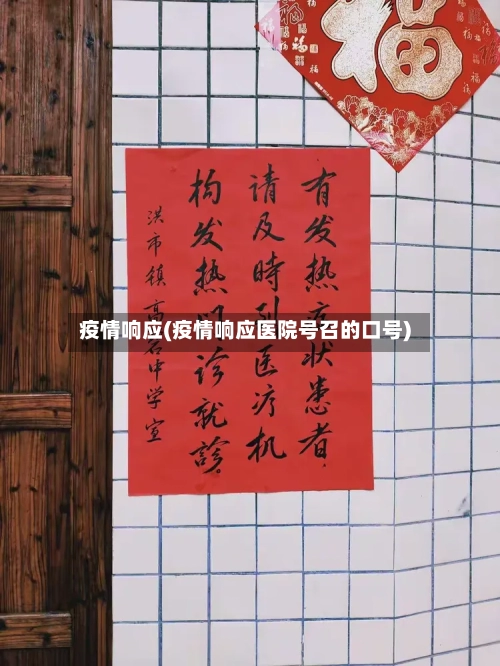 福
有发热症状患者,
请及時到医疗机
构发热门诊就診。
洪市镇高石中学宣
疫情响应(疫情响应医院号召的口号)